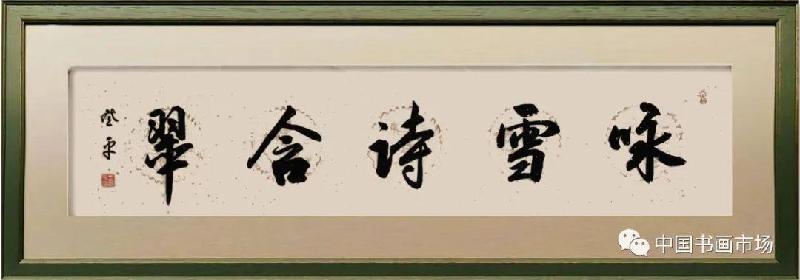 咏雪诗含翠
中国书画市场